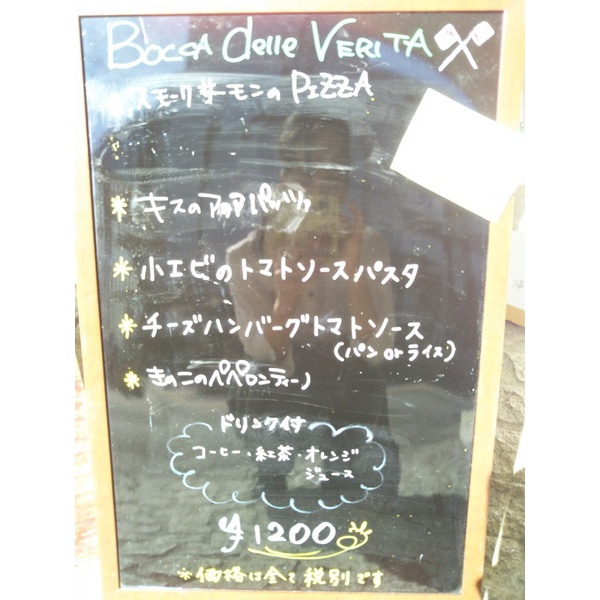 Bocca delle VERITA
スモークサーモンのPIZZA
* キスのアクアパッツァ
* 小エビのトマトソースパスタ
* チーズハンバーグトマトソース
(パン or ライス)
* きのこのペペロンティーノ
ドリンク付
コーヒー・紅茶・オレンジ
ジュース
¥1200
※価格は全て税別です